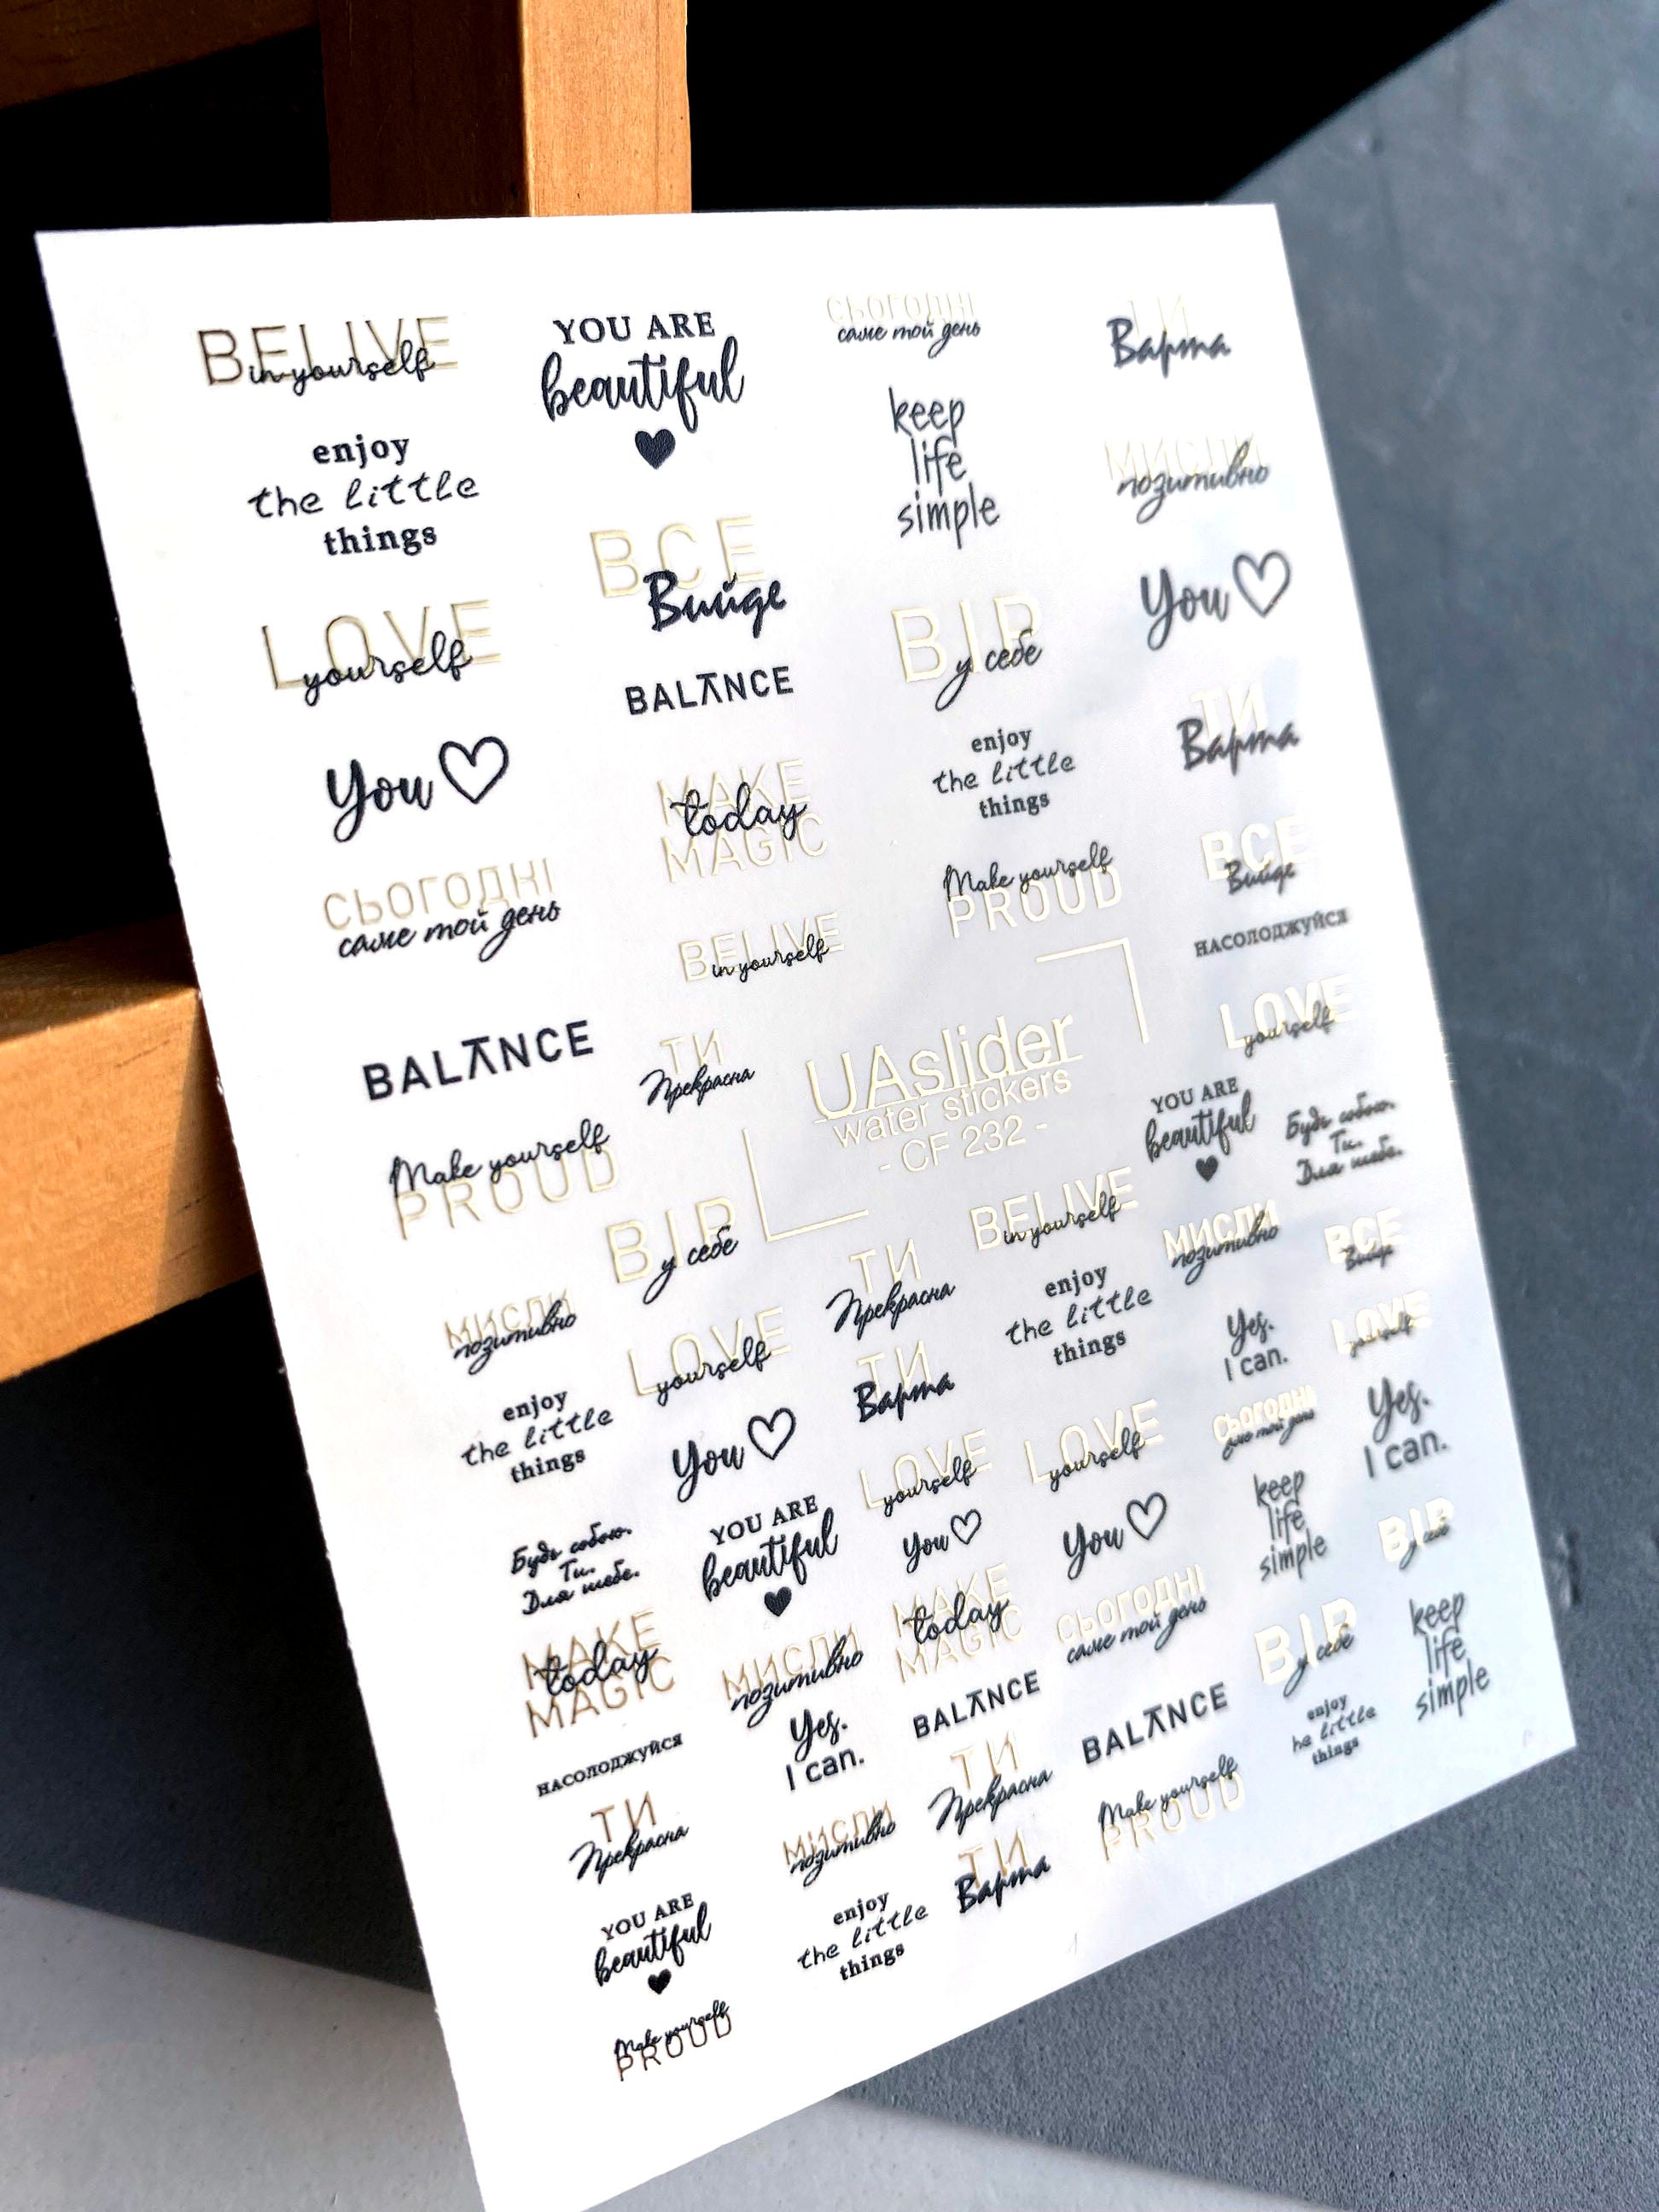 BELIVE
in yourself
YOU ARE
beautiful
СЬОГОДНІ
саме той день
ТИ
Варта
enjoy
the little
things
keep
life
simple
МИСЛИ
позитивно
ВСЕ
Вийде
LOVE
yourself
ВІР
у себе
You
BALANCE
ТИ
Варта
You
MAKE
today
MAGIC
enjoy
the little
things
ВСЕ
Вийде
СЬОГОДНІ
саме той день
BELIVE
in yourself
Make yourself
PROUD
НАСОЛОДЖУЙСЯ
BALANCE
ТИ
Прекрасна
UAslider
water stickers
- CF 232 -
LOVE
yourself
Make yourself
PROUD
ВІР
у себе
YOU ARE
beautiful
Будь собою.
Ти.
Для тебе.
МИСЛИ
позитивно
ТИ
Прекрасна
BELIVE
in yourself
МИСЛИ
позитивно
ВСЕ
Вийде
LOVE
yourself
ТИ
Варта
enjoy
the little
things
Yes.
I can.
LOVE
yourself
enjoy
the little
things
You
LOVE
yourself
LOVE
yourself
СЬОГОДНІ
саме той день
Yes.
I can.
Будь собою.
Ти.
Для тебе.
YOU ARE
beautiful
You
You
keep
life
simple
ВІР
у себе
MAKE
today
MAGIC
МИСЛИ
позитивно
MAKE
today
MAGIC
СЬОГОДНІ
саме той день
ВІР
у себе
keep
life
simple
НАСОЛОДЖУЙСЯ
Yes.
I can.
BALANCE
BALANCE
enjoy
he little
things
ТИ
Прекрасна
МИСЛИ
позитивно
ТИ
Прекрасна
Make yourself
PROUD
YOU ARE
beautiful
enjoy
the little
things
ТИ
Варта
Make yourself
PROUD